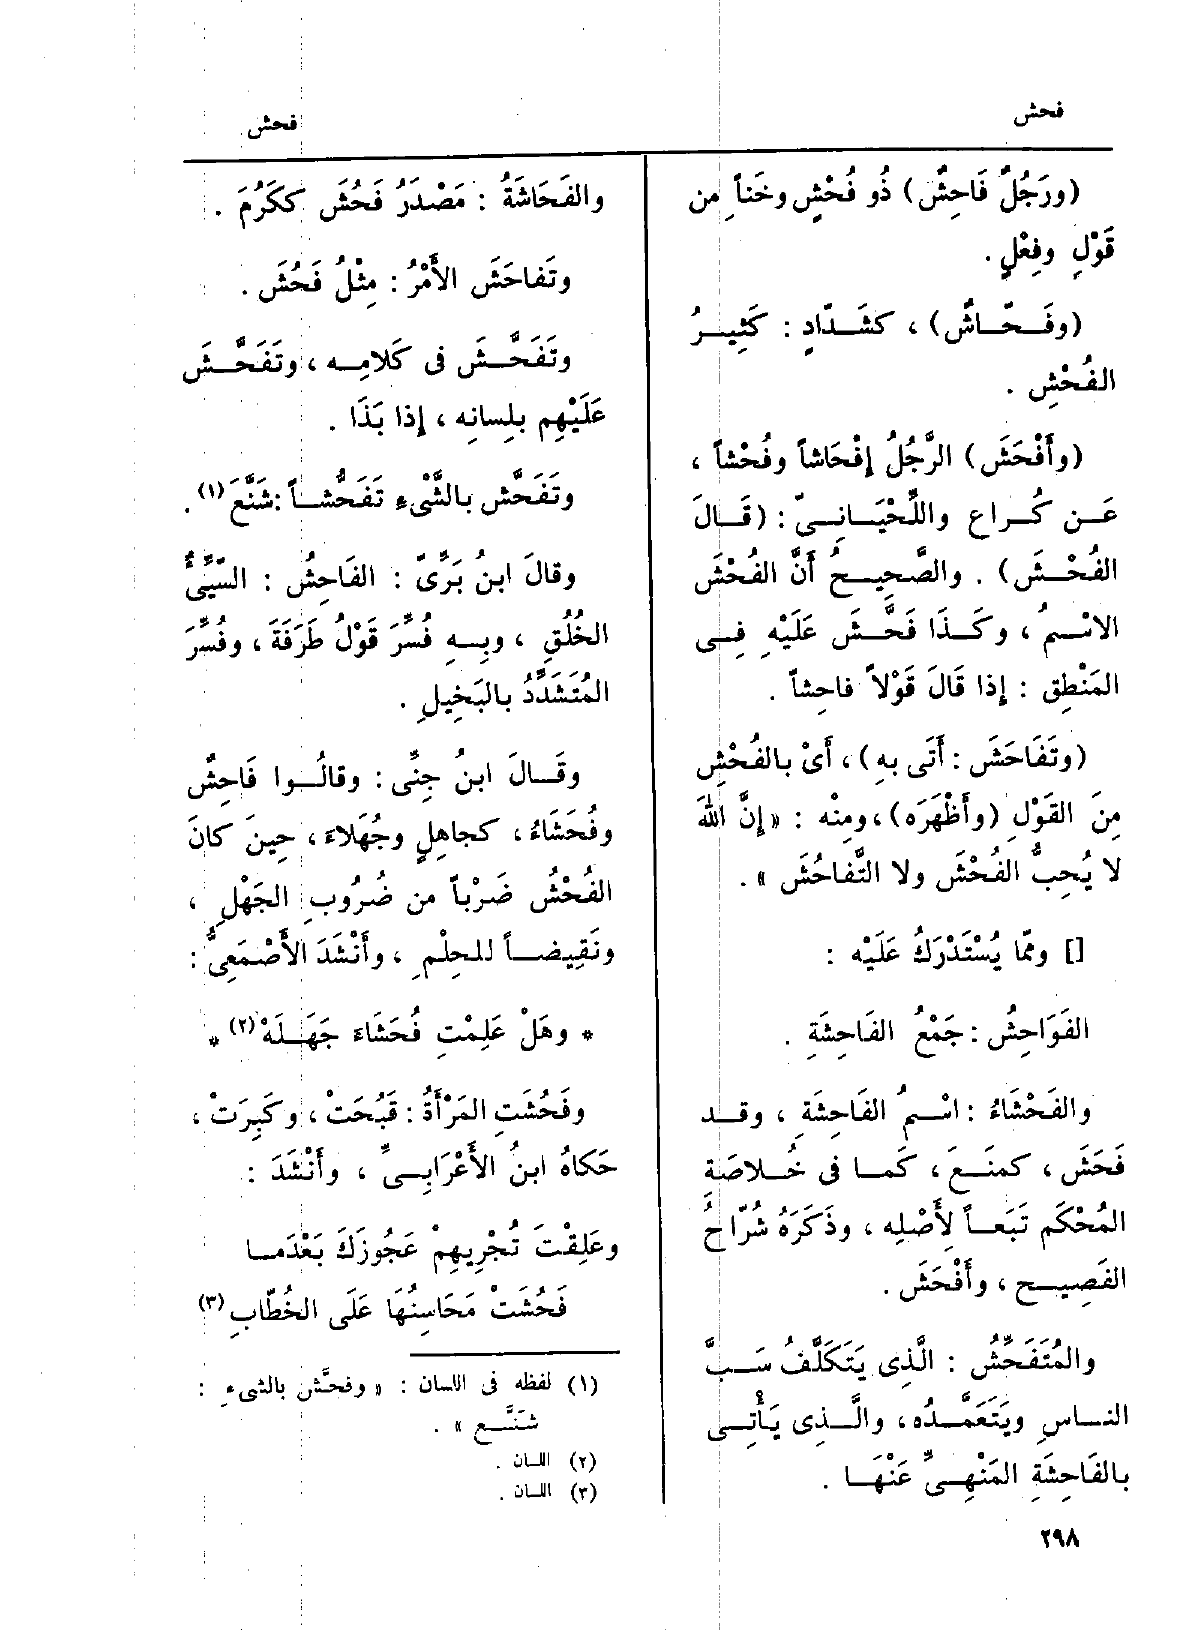 فحش
فحش
(ورَجُلٌ فَاحِشٌ) ذُو فُحْشٍ وخَناً مِن
قَوْلٍ وفِعْلٍ .
(وفَحّاشٌ) ، كشَدّادٍ : كَثِيرُ
الفُحْشِ .
(وأَفْحَشَ) الرَّجُلُ إِفْحَاشاً وفُحْشاً ،
عَن كُراع واللِّحْيَانِيّ : (قَالَ
الفُحْشَ) . والصَّحِيحُ أَنَّ الفُحْشَ
الاسْمُ ، وكَذَا فَحَّشَ عَلَيْهِ فِى
المَنْطِق : إِذا قَالَ قَوْلاً فاحِشاً .
(وتَفَاحَشَ : أَتَى بهِ) ، أَىْ بالفُحْشِ
مِنَ القَوْلِ (وأَظْهَرَه) ، ومِنْه : « إِنَّ اللهَ
لا يُحِبُّ الفُحْشَ ولا التَّفاحُشَ » .
[] وممّا يُسْتَدْرَكُ عَلَيْه :
الفَوَاحِشُ : جَمْعُ الفَاحِشَةِ .
والفَحْشَاءُ : اسْمُ الفَاحِشَةِ ، وقد
فَحَشَ ، كمنَعَ ، كَما فى خُلاصَةِ
المُحْكَم تَبَعاً لِأَصْلِه ، وذَكَرَهُ شُرّاحُ
الفَصِيح ، وأَفْحَشَ .
والمُتَفَحِّشُ : الَّذِى يَتَكَلَّفُ سَبَّ
الناسِ ويَتَعَمَّدُه ، والَّذِى يَأْتِى
بالفَاحِشَةِ المَنْهِىِّ عَنْهَا .
والفَحَاشَةُ : مَصْدَرُ فَحُشَ ككَرُمَ .
وتَفاحَشَ الأَمْرُ : مِثْلُ فَحُشَ .
وتَفَحَّشَ فى كَلامِه ، وتَفَحَّشَ
عَلَيْهِم بلِسانِه ، إِذا بَذَا .
وتَفَحَّش بالشَّىْءِ تَفَحُّشاً : شَنَّعَ (١) .
وقالَ ابنُ بَرِّىّ : الفَاحِشُ : السَّيِّىُّ
الخُلُقِ ، وبِهِ فُسِّرَ قَوْلُ طَرَفَةَ ، وفُسِّرَ
المُتَشَدِّدُ بالبَخِيلِ .
وقَالَ ابنُ جِنِّى : وقالُوا فَاحِشٌ
وفُحَشَاءُ ، كجاهِلٍ وجُهَلاءَ ، حِينَ كانَ
الفُحْشُ ضَرْباً من ضُرُوبِ الجَهْلِ ،
ونَقِيضاً للحِلْمِ ، وأَنْشَدَ الأَصْمَعِىُّ :
* وهَلْ عَلِمْتِ فُحَشَاءَ جَهَلَهْ (٢) *
وفَحُشَتِ المَرْأَةُ : قَبُحَتْ ، وكَبِرَتْ ،
حَكاهُ ابنُ الأَعْرَابِىِّ ، وأَنْشَدَ :
وعَلِقْتَ تُجْرِيهِمْ عَجُوزَكَ بَعْدَما
فَحُشَتْ مَحَاسِنُهَا عَلَى الخُطّابِ (٣)
(١) لفظه فى اللسان : « وفحَّش بالشىء :
شَنَّع » .
(٢) اللسان .
(٣) اللسان .
٢٩٨